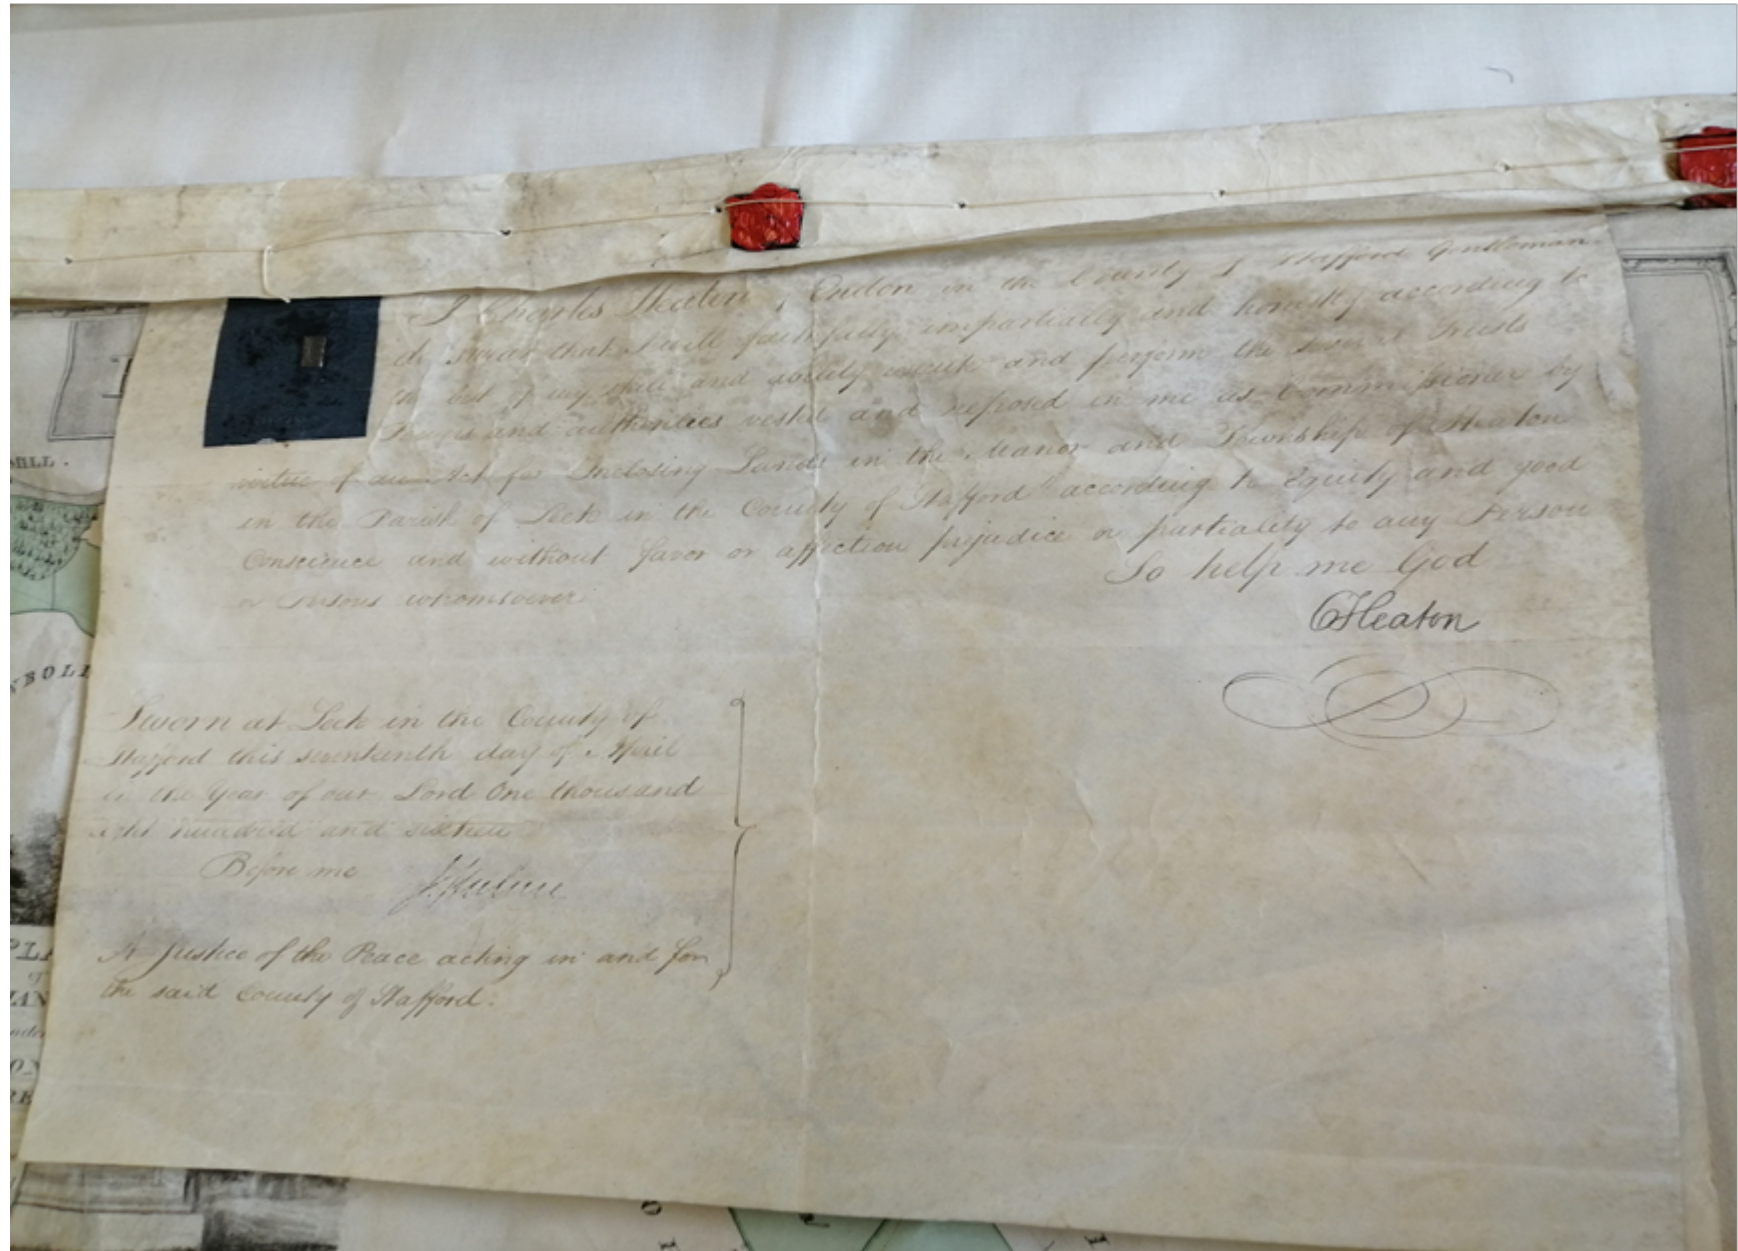 I Charles Heaton of Endon in the County of Stafford Gentleman
do swear that I will faithfully impartially and honestly according to
the best of my skill and ability execute and perform the several Trusts
Powers and authorities vested and reposed in me as Commissioner by
virtue of an Act for Inclosing Lands in the Manor and Township of Heaton
in the Parish of Leek in the County of Stafford" according to Equity and good
Conscience and without favor or affection prejudice or partiality to any Person
or Persons whomsoever
So help me God
CHeaton
Sworn at Leek in the County of
Stafford this seventeenth day of April
in the Year of our Lord One thousand
eight hundred and sixteen
Before me
A Justice of the Peace acting in and for
the said County of Stafford.